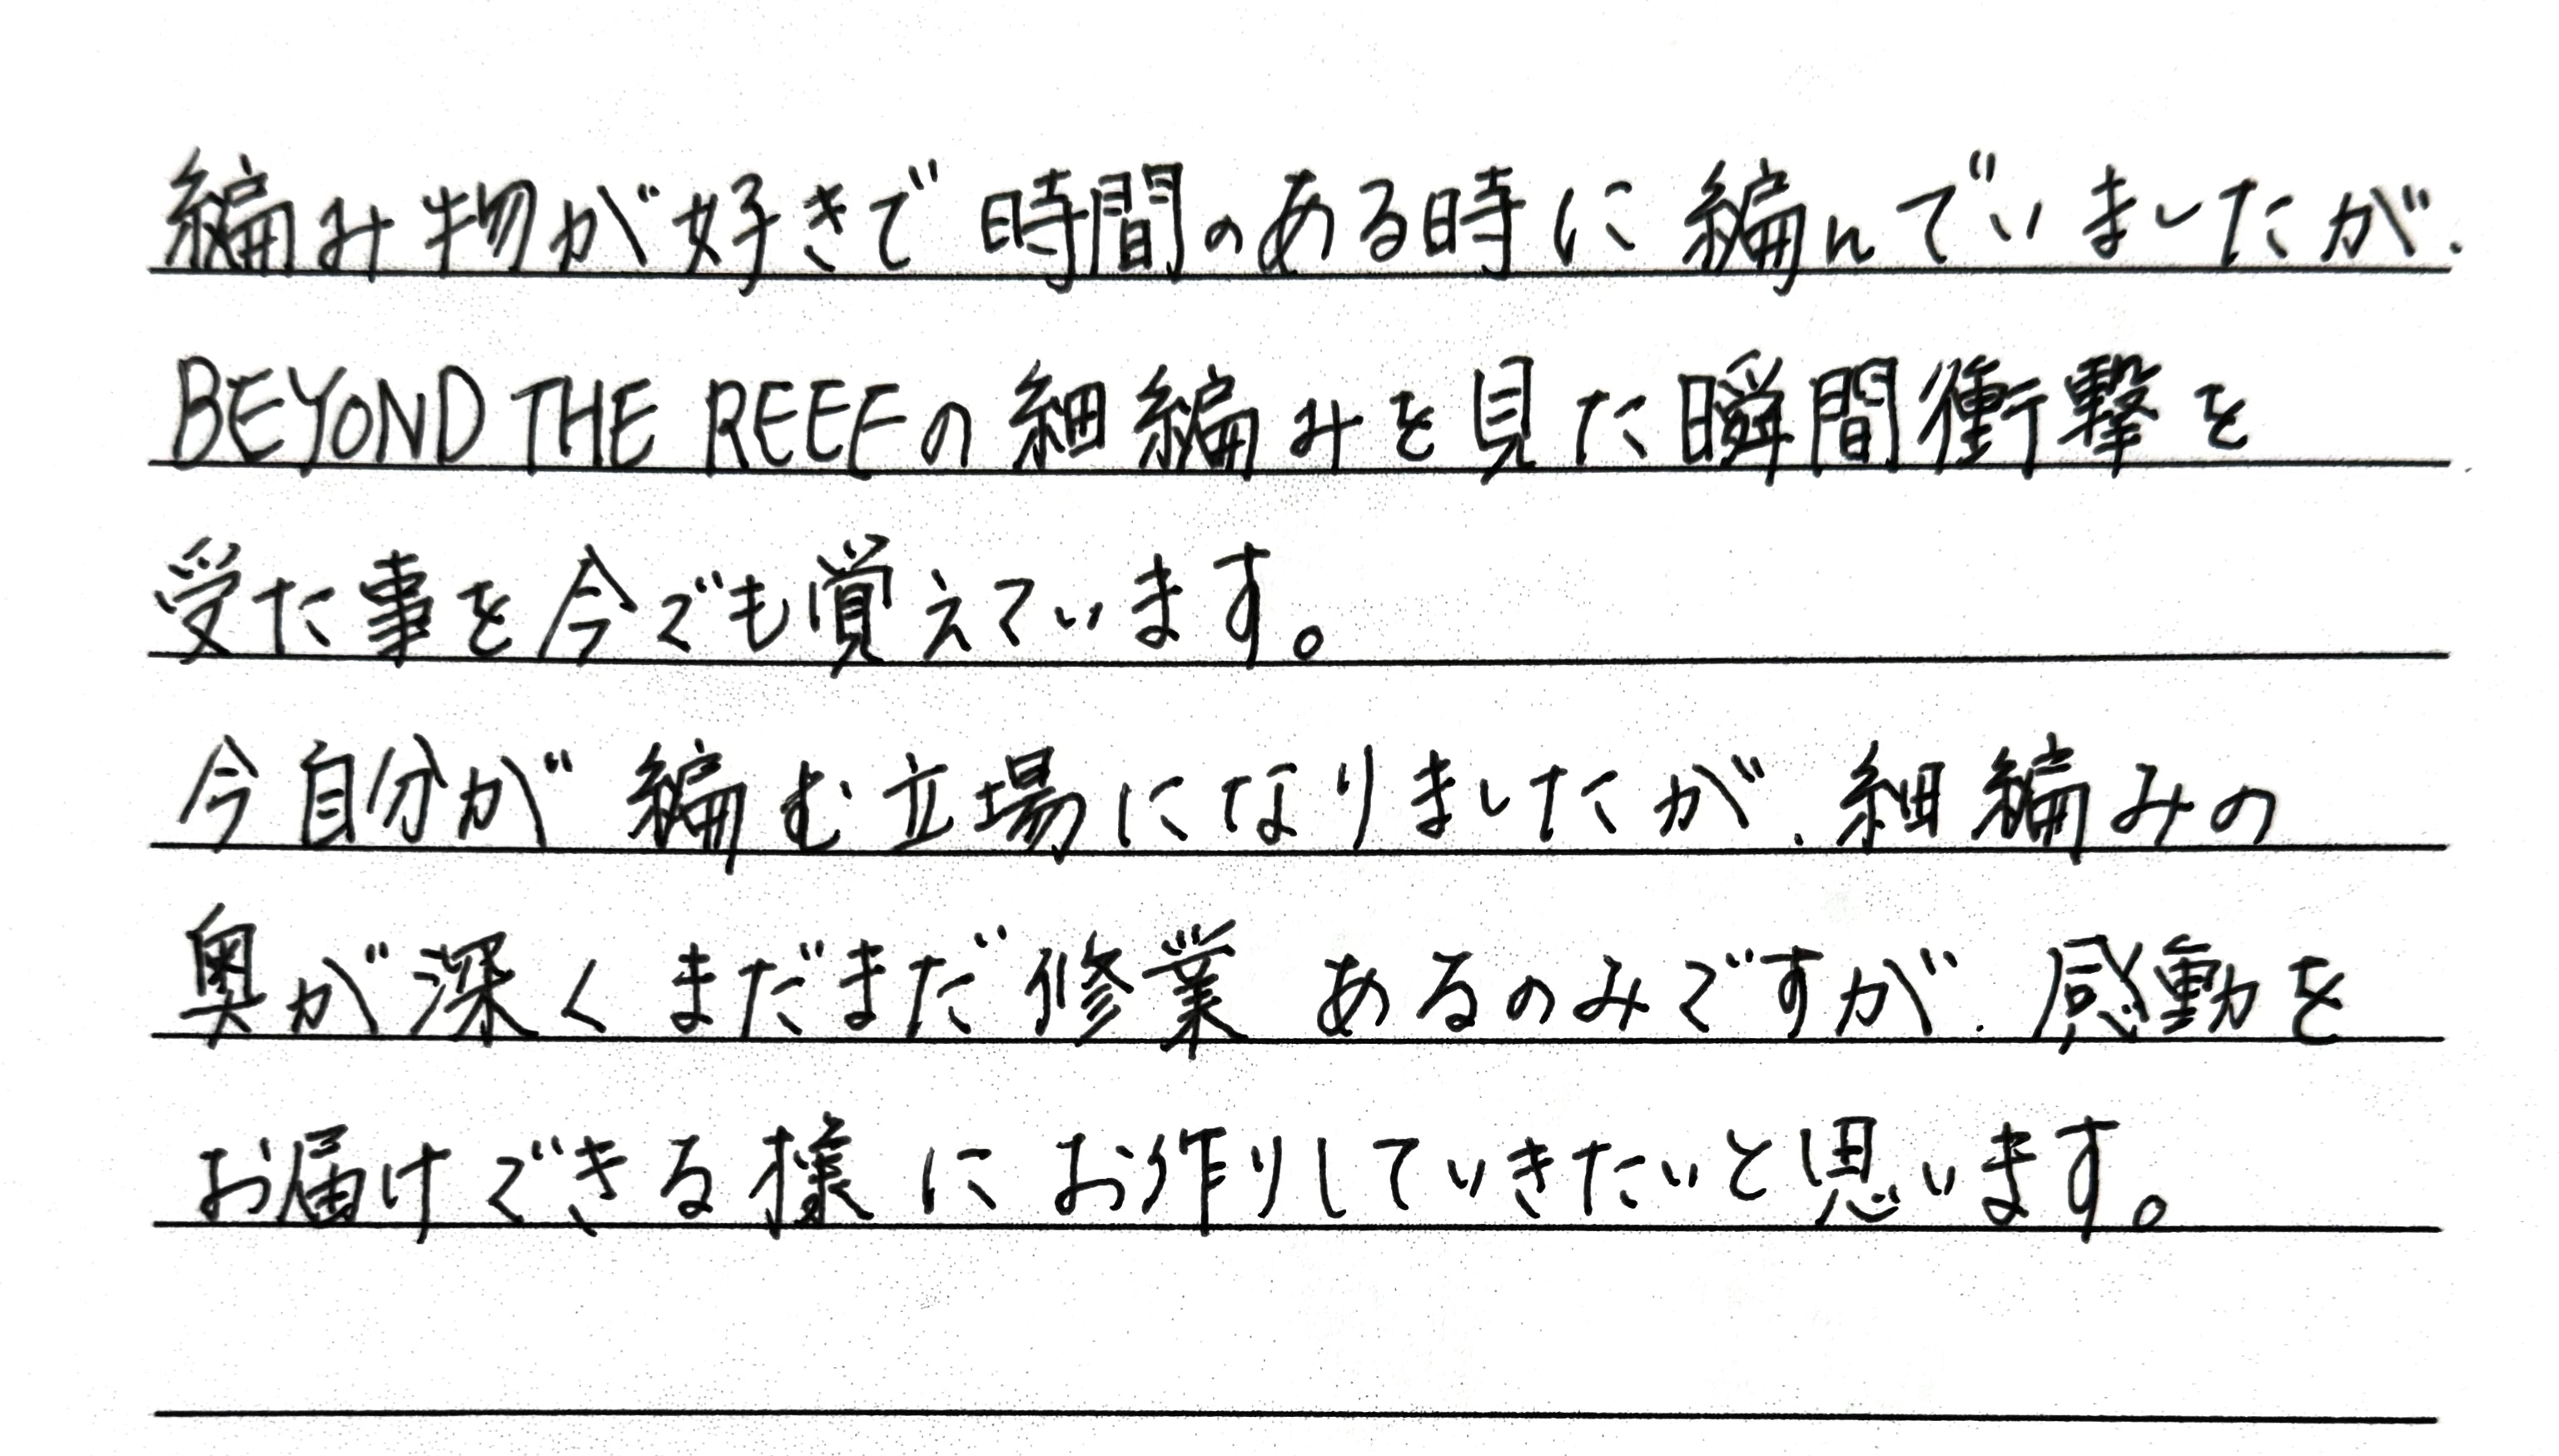 編み物が好きで時間のある時に編んでいましたが、
BEYOND THE REEFの細編みを見た瞬間衝撃を
受た事を今でも覚えています。
今自分が編む立場になりましたが、細編みの
奥が深くまだまだ修業あるのみですが、感動を
お届けできる様にお作りしていきたいと思います。